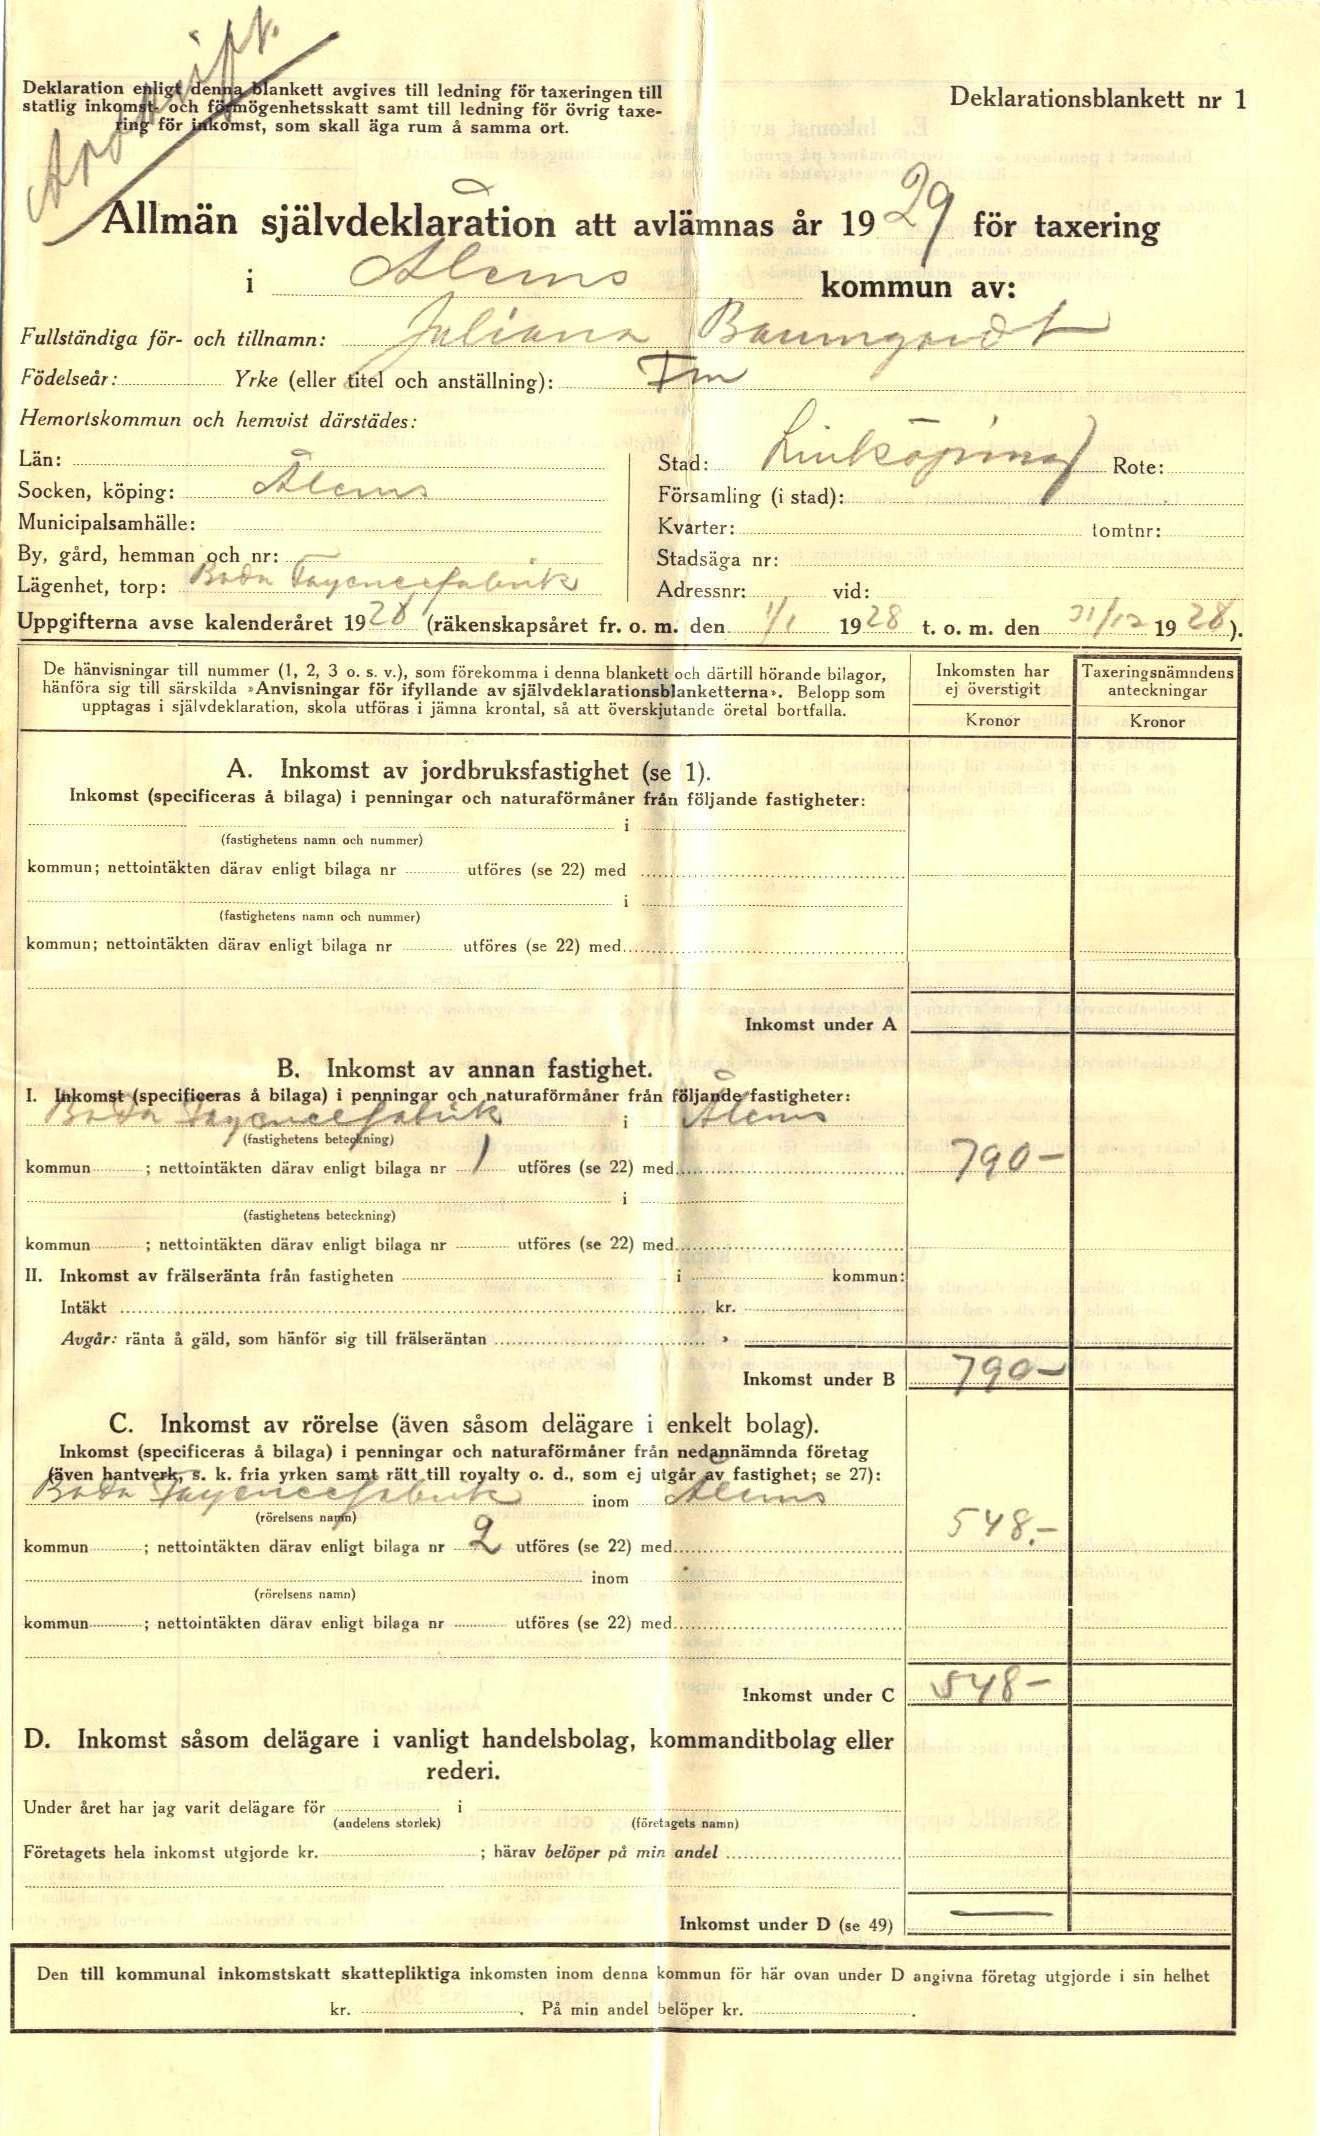 Avskrift.
Deklaration enligt denna blankett avgives till ledning för taxeringen till
statlig inkomst- och förmögenhetsskatt samt till ledning för övrig taxe-
ring för inkomst, som skall äga rum å samma ort.
Deklarationsblankett nr 1
Allmän självdeklaration att avlämnas år 1929 för taxering
i Ålems kommun av:
Fullständiga för- och tillnamn: Juliana Baumgardt
Födelseår: Yrke (eller titel och anställning): Fru
Hemortskommun och hemvist därstädes:
Län:
Socken, köping: Ålems
Municipalsamhälle:
By, gård, hemman och nr:
Lägenhet, torp: Boda Fayencefabrik
Stad: Linköping Rote:
Församling (i stad):
Kvarter: tomtnr:
Stadsäga nr:
Adressnr: vid:
Uppgifterna avse kalenderåret 1928 (räkenskapsåret fr. o. m. den 1/1 1928 t. o. m. den 31/12 1928).
De hänvisningar till nummer (1, 2, 3 o. s. v.), som förekomma i denna blankett och därtill hörande bilagor,
hänföra sig till särskilda »Anvisningar för ifyllande av självdeklarationsblanketterna». Belopp som
upptagas i självdeklaration, skola utföras i jämna krontal, så att överskjutande öretal bortfalla.
Inkomsten har
ej överstigit
Kronor
Taxeringsnämndens
anteckningar
Kronor
A. Inkomst av jordbruksfastighet (se 1).
Inkomst (specificeras å bilaga) i penningar och naturaförmåner från följande fastigheter:
i
(fastighetens namn och nummer)
kommun; nettointäkten därav enligt bilaga nr utföres (se 22) med
i
(fastighetens namn och nummer)
kommun; nettointäkten därav enligt bilaga nr utföres (se 22) med
Inkomst under A
B. Inkomst av annan fastighet.
I. Inkomst (specificeras å bilaga) i penningar och naturaförmåner från följande fastigheter:
Boda Fayencefabrik i Ålems
(fastighetens beteckning)
kommun ; nettointäkten därav enligt bilaga nr 1 utföres (se 22) med 790-
i
(fastighetens beteckning)
kommun ; nettointäkten därav enligt bilaga nr utföres (se 22) med
II. Inkomst av frälseränta från fastigheten i kommun:
Intäkt kr.
Avgår: ränta å gäld, som hänför sig till frälseräntan »
Inkomst under B 790-
C. Inkomst av rörelse (även såsom delägare i enkelt bolag).
Inkomst (specificeras å bilaga) i penningar och naturaförmåner från nedannämnda företag
(även hantverk, s. k. fria yrken samt rätt till royalty o. d., som ej utgår av fastighet; se 27):
Boda Fayencefabrik inom Ålems
(rörelsens namn)
kommun ; nettointäkten därav enligt bilaga nr 2 utföres (se 22) med 548.-
inom
(rörelsens namn)
kommun ; nettointäkten därav enligt bilaga nr utföres (se 22) med
Inkomst under C 548-
D. Inkomst såsom delägare i vanligt handelsbolag, kommanditbolag eller
rederi.
Under året har jag varit delägare för i
(andelens storlek) (företagets namn)
Företagets hela inkomst utgjorde kr. ; härav belöper på min andel
Inkomst under D (se 49) —
Den till kommunal inkomstskatt skattepliktiga inkomsten inom denna kommun för här ovan under D angivna företag utgjorde i sin helhet
kr. . På min andel belöper kr. .